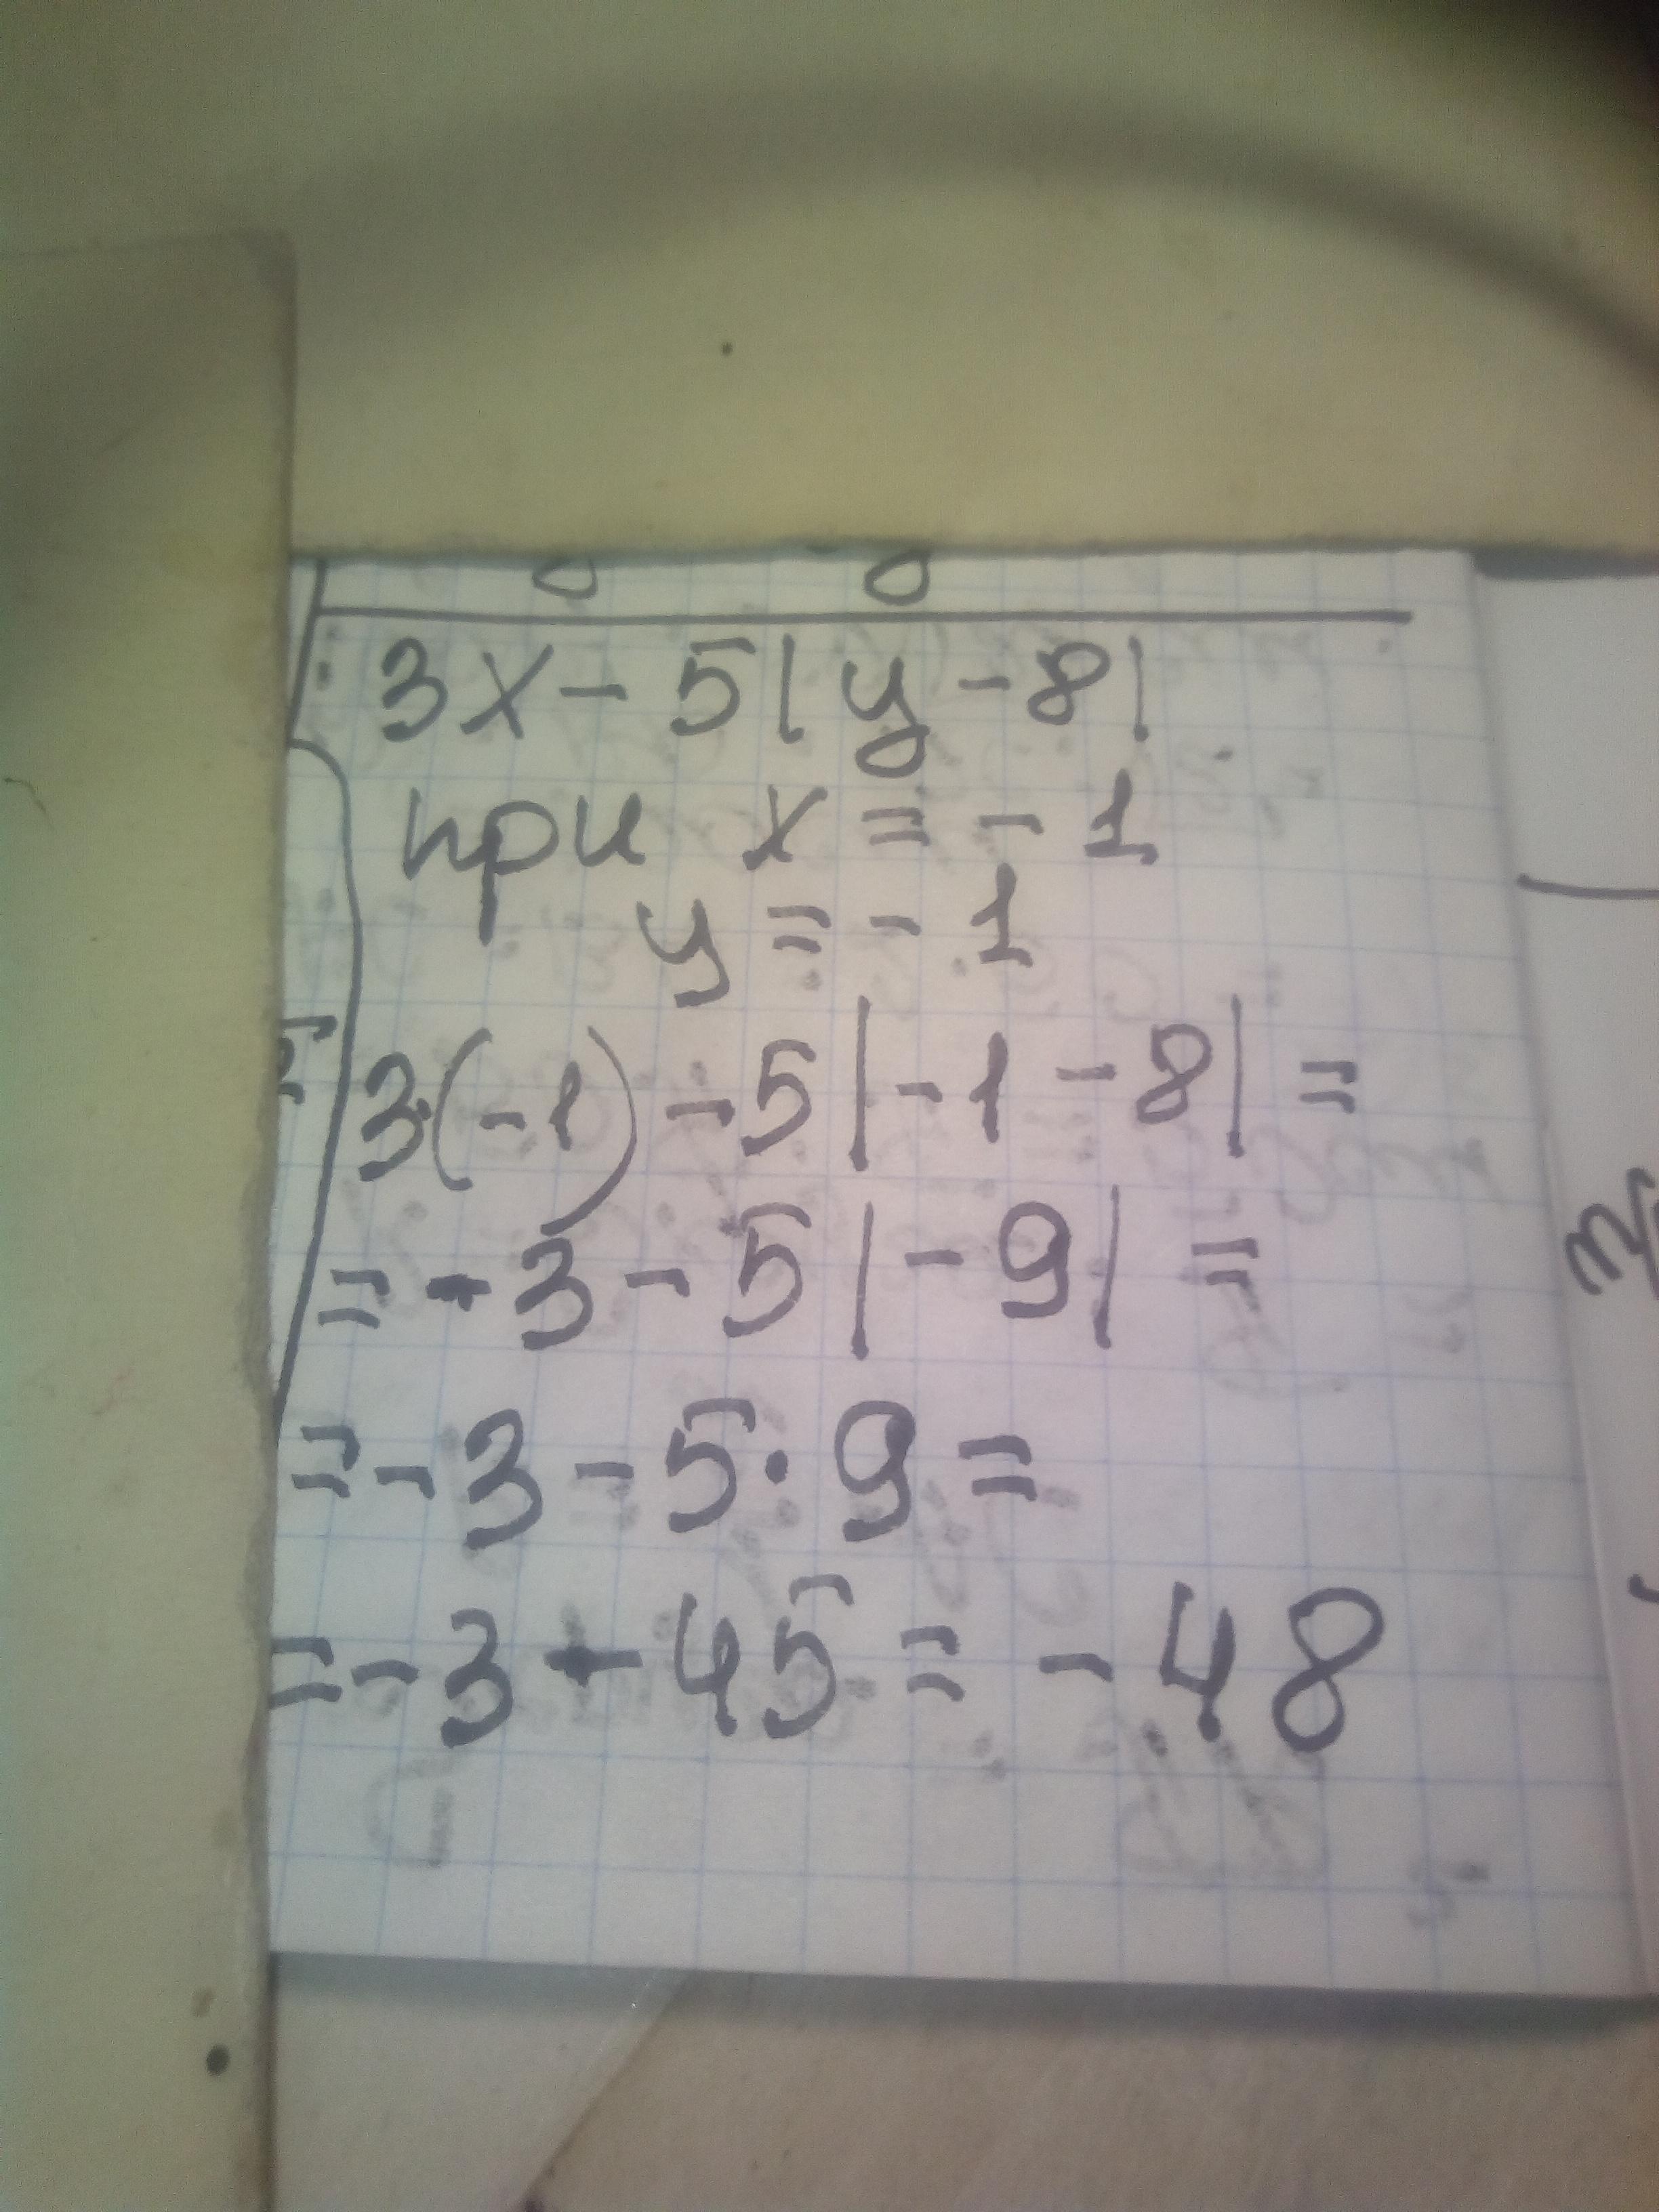 3x - 5|y - 8|
при x = - 1
y = - 1
3·(-1) - 5|-1 - 8| =
= - 3 - 5|- 9| =
= - 3 - 5 · 9 =
= - 3 - 45 = - 48